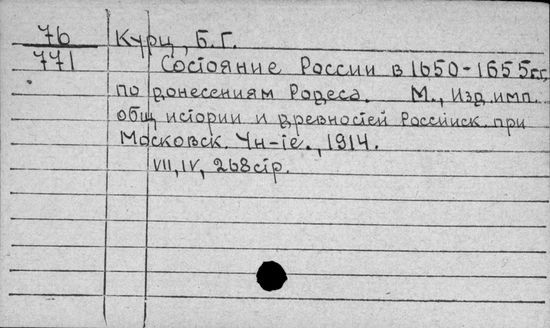 76 Курц, Б. Г.
771 Состояние России в 1650-1655гг.
по донесениям Родеса. М., Изд. имп.
общ. истории и древностей Российск. при
Московск. Ун-те., 1914.
VII, IV, 268 стр.